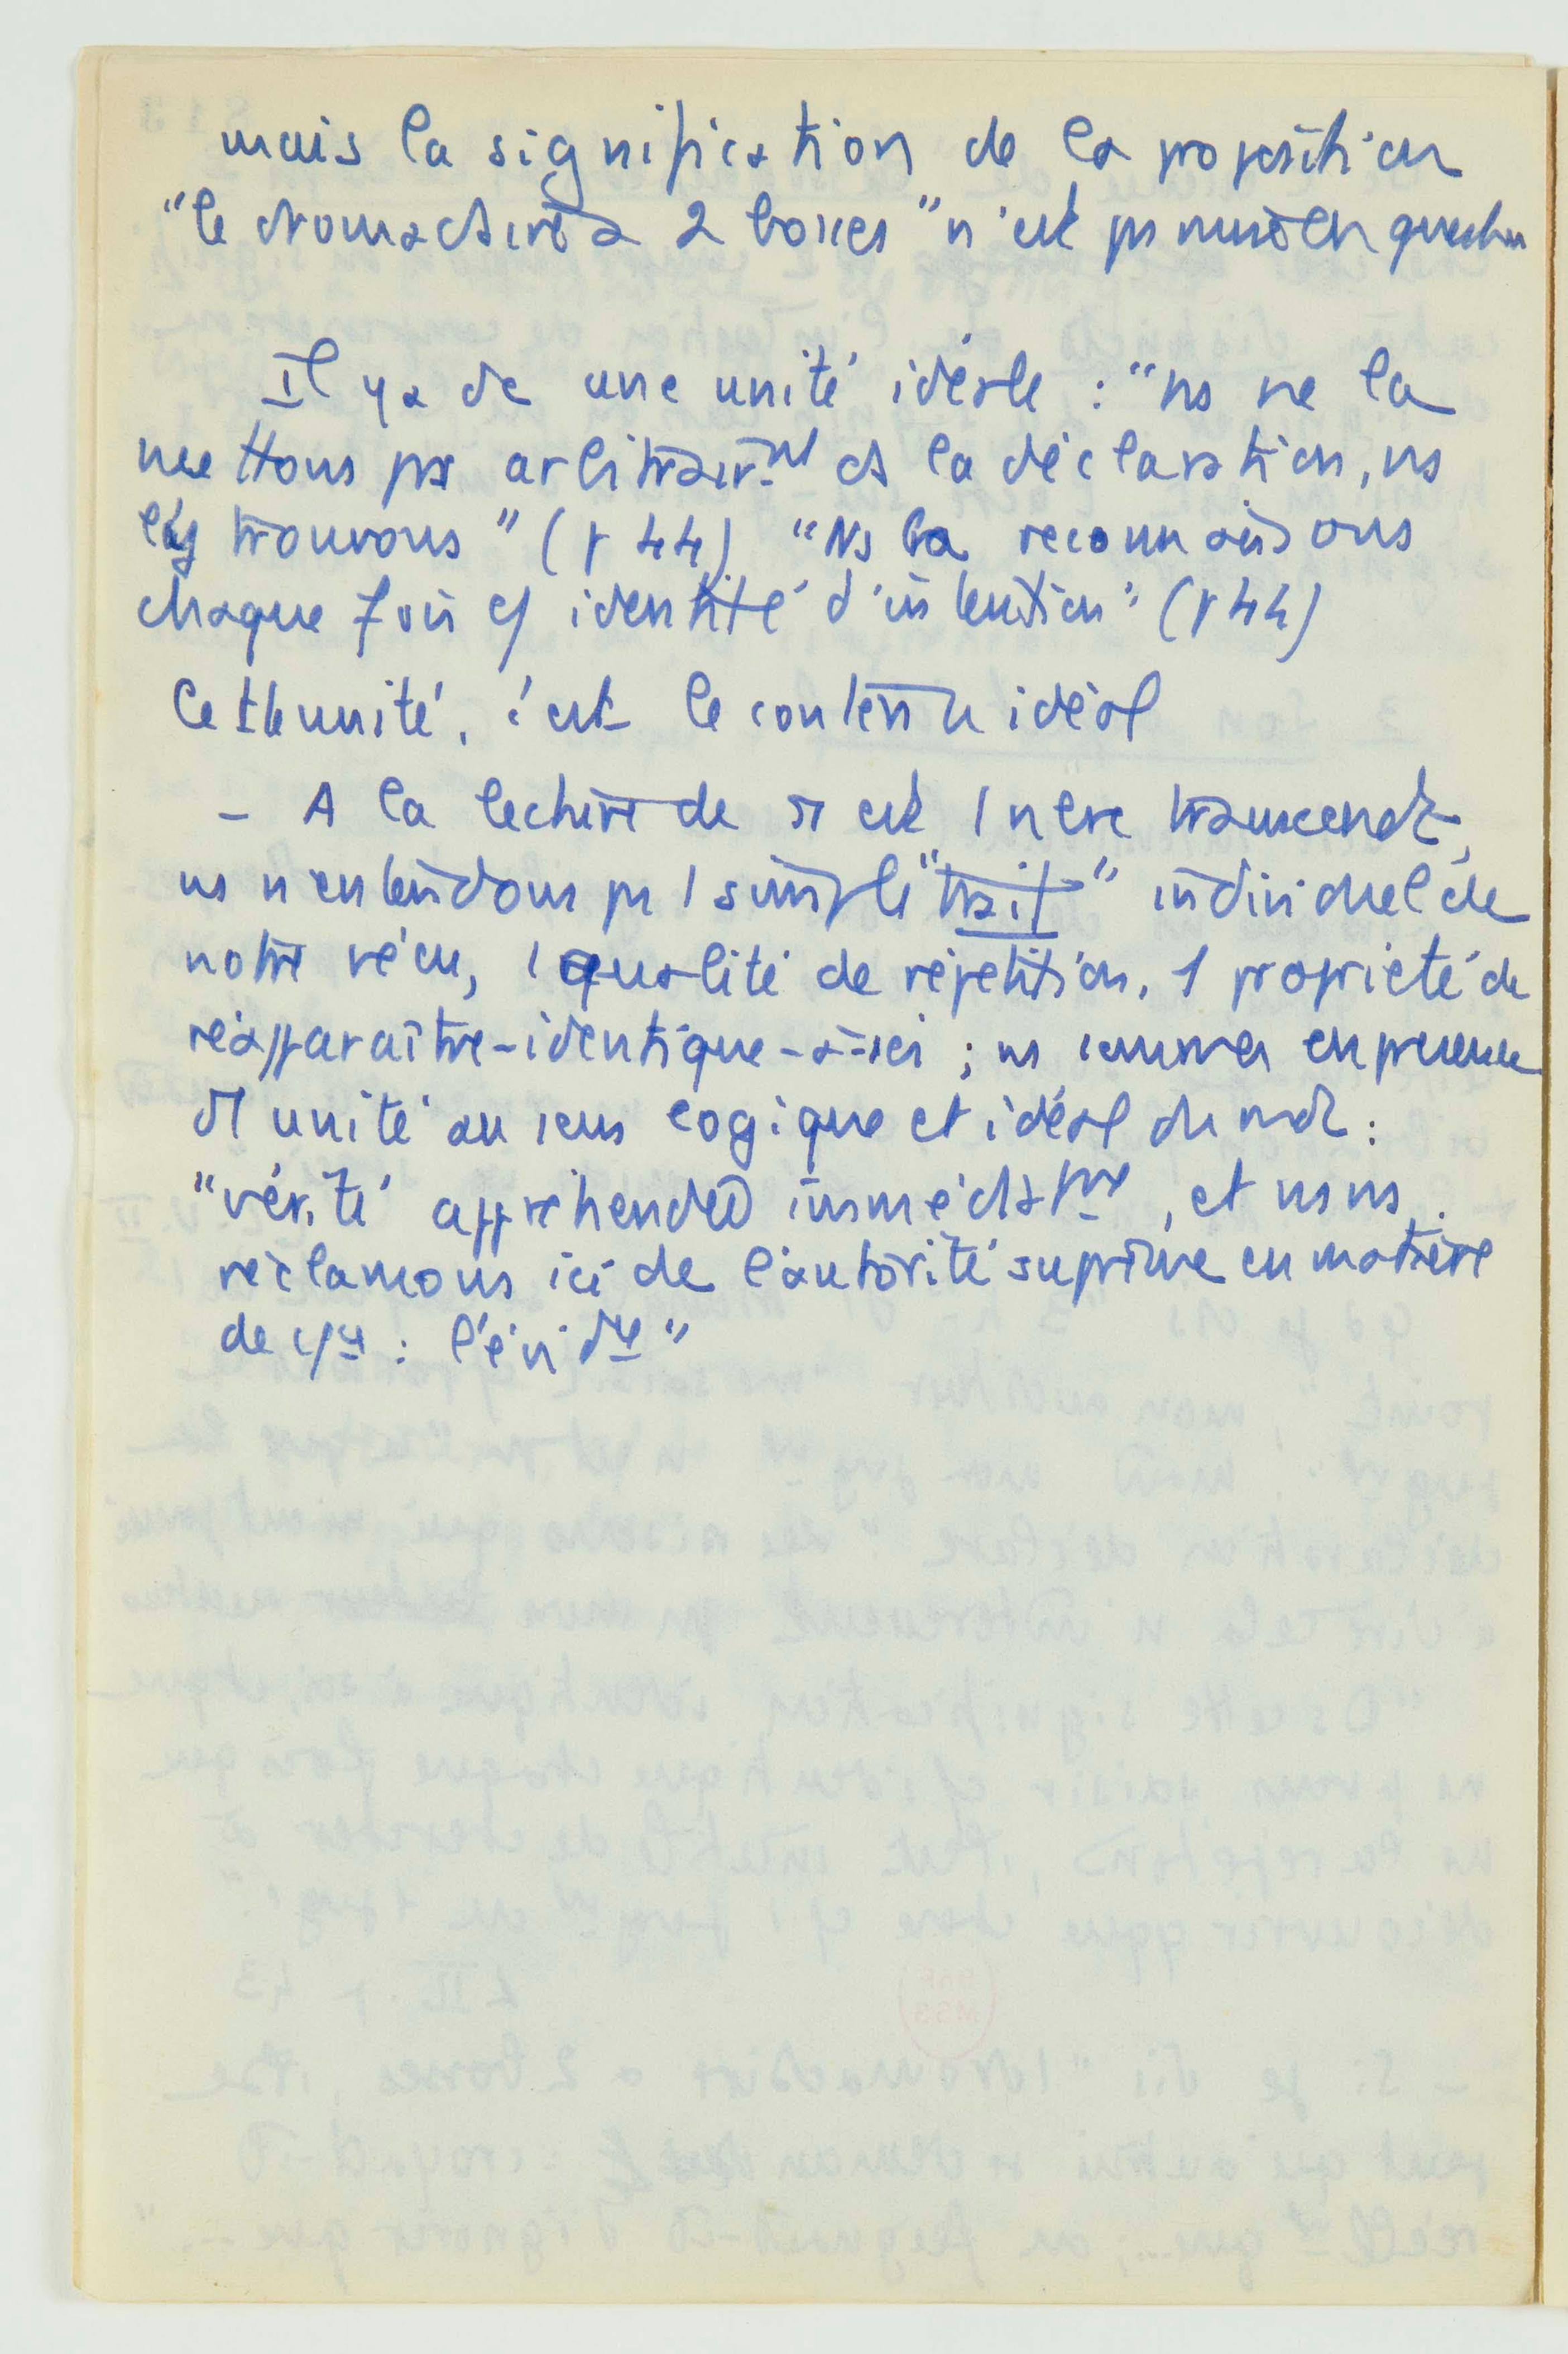 mais la signification de la proposition
"le dromadaire a 2 bosses" n'est pas mise en question
Il y a dc une unité idéale : "ns ne la
mettons pas arbitrairnt ds la déclaration, ns
l'y trouvons" (p 44) "Ns la reconnaissons
chaque fois c/ identité d'intention" (p 44)
Cette unité, c'est le contenu idéal
- A la lecture de π est 1 nbre transcendt,
ns n'entendons pas 1 simple "trait" individuel de
notre vécu, 1 qualité de répétition, 1 propriété de
réapparaître-identique-à-soi ; ns sommes en présence
d'1 unité au sens logique et idéal du mot :
"vérité appréhendée et ns ns
réclamons ici de l'autorité suprême en matière
de : l'évidce"